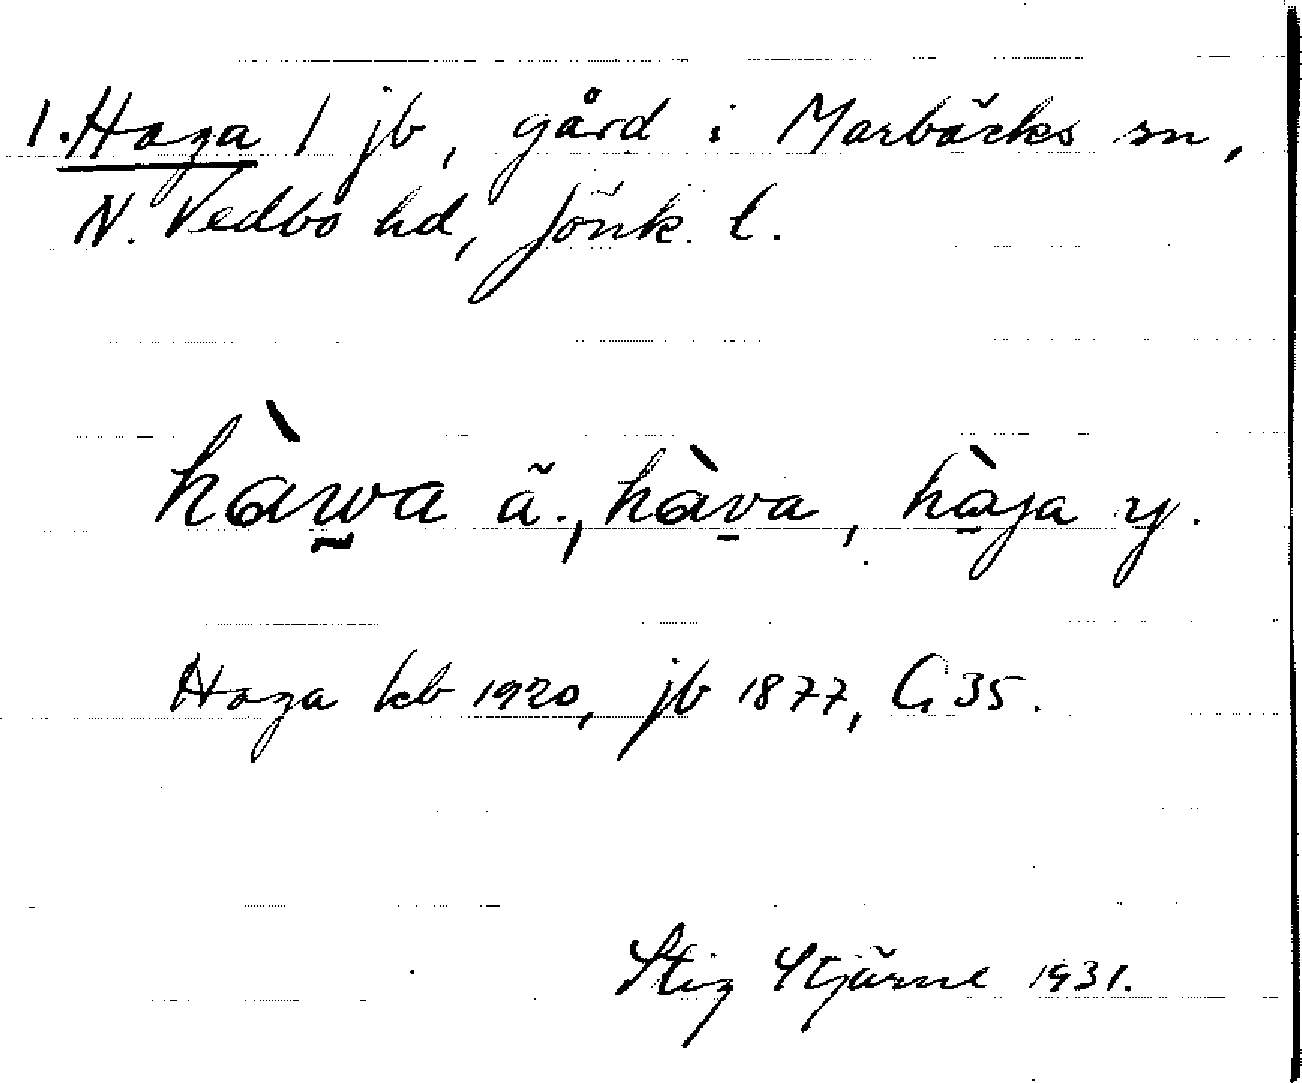 1. Haga 1 jb, gård i Marbäcks sn,
N. Vedbo hd, Jönk. l.
hàwa ä., hàva, hàga y.
Haga kb 1920, jb 1877, G 35.
Stig Stjärne 1931.